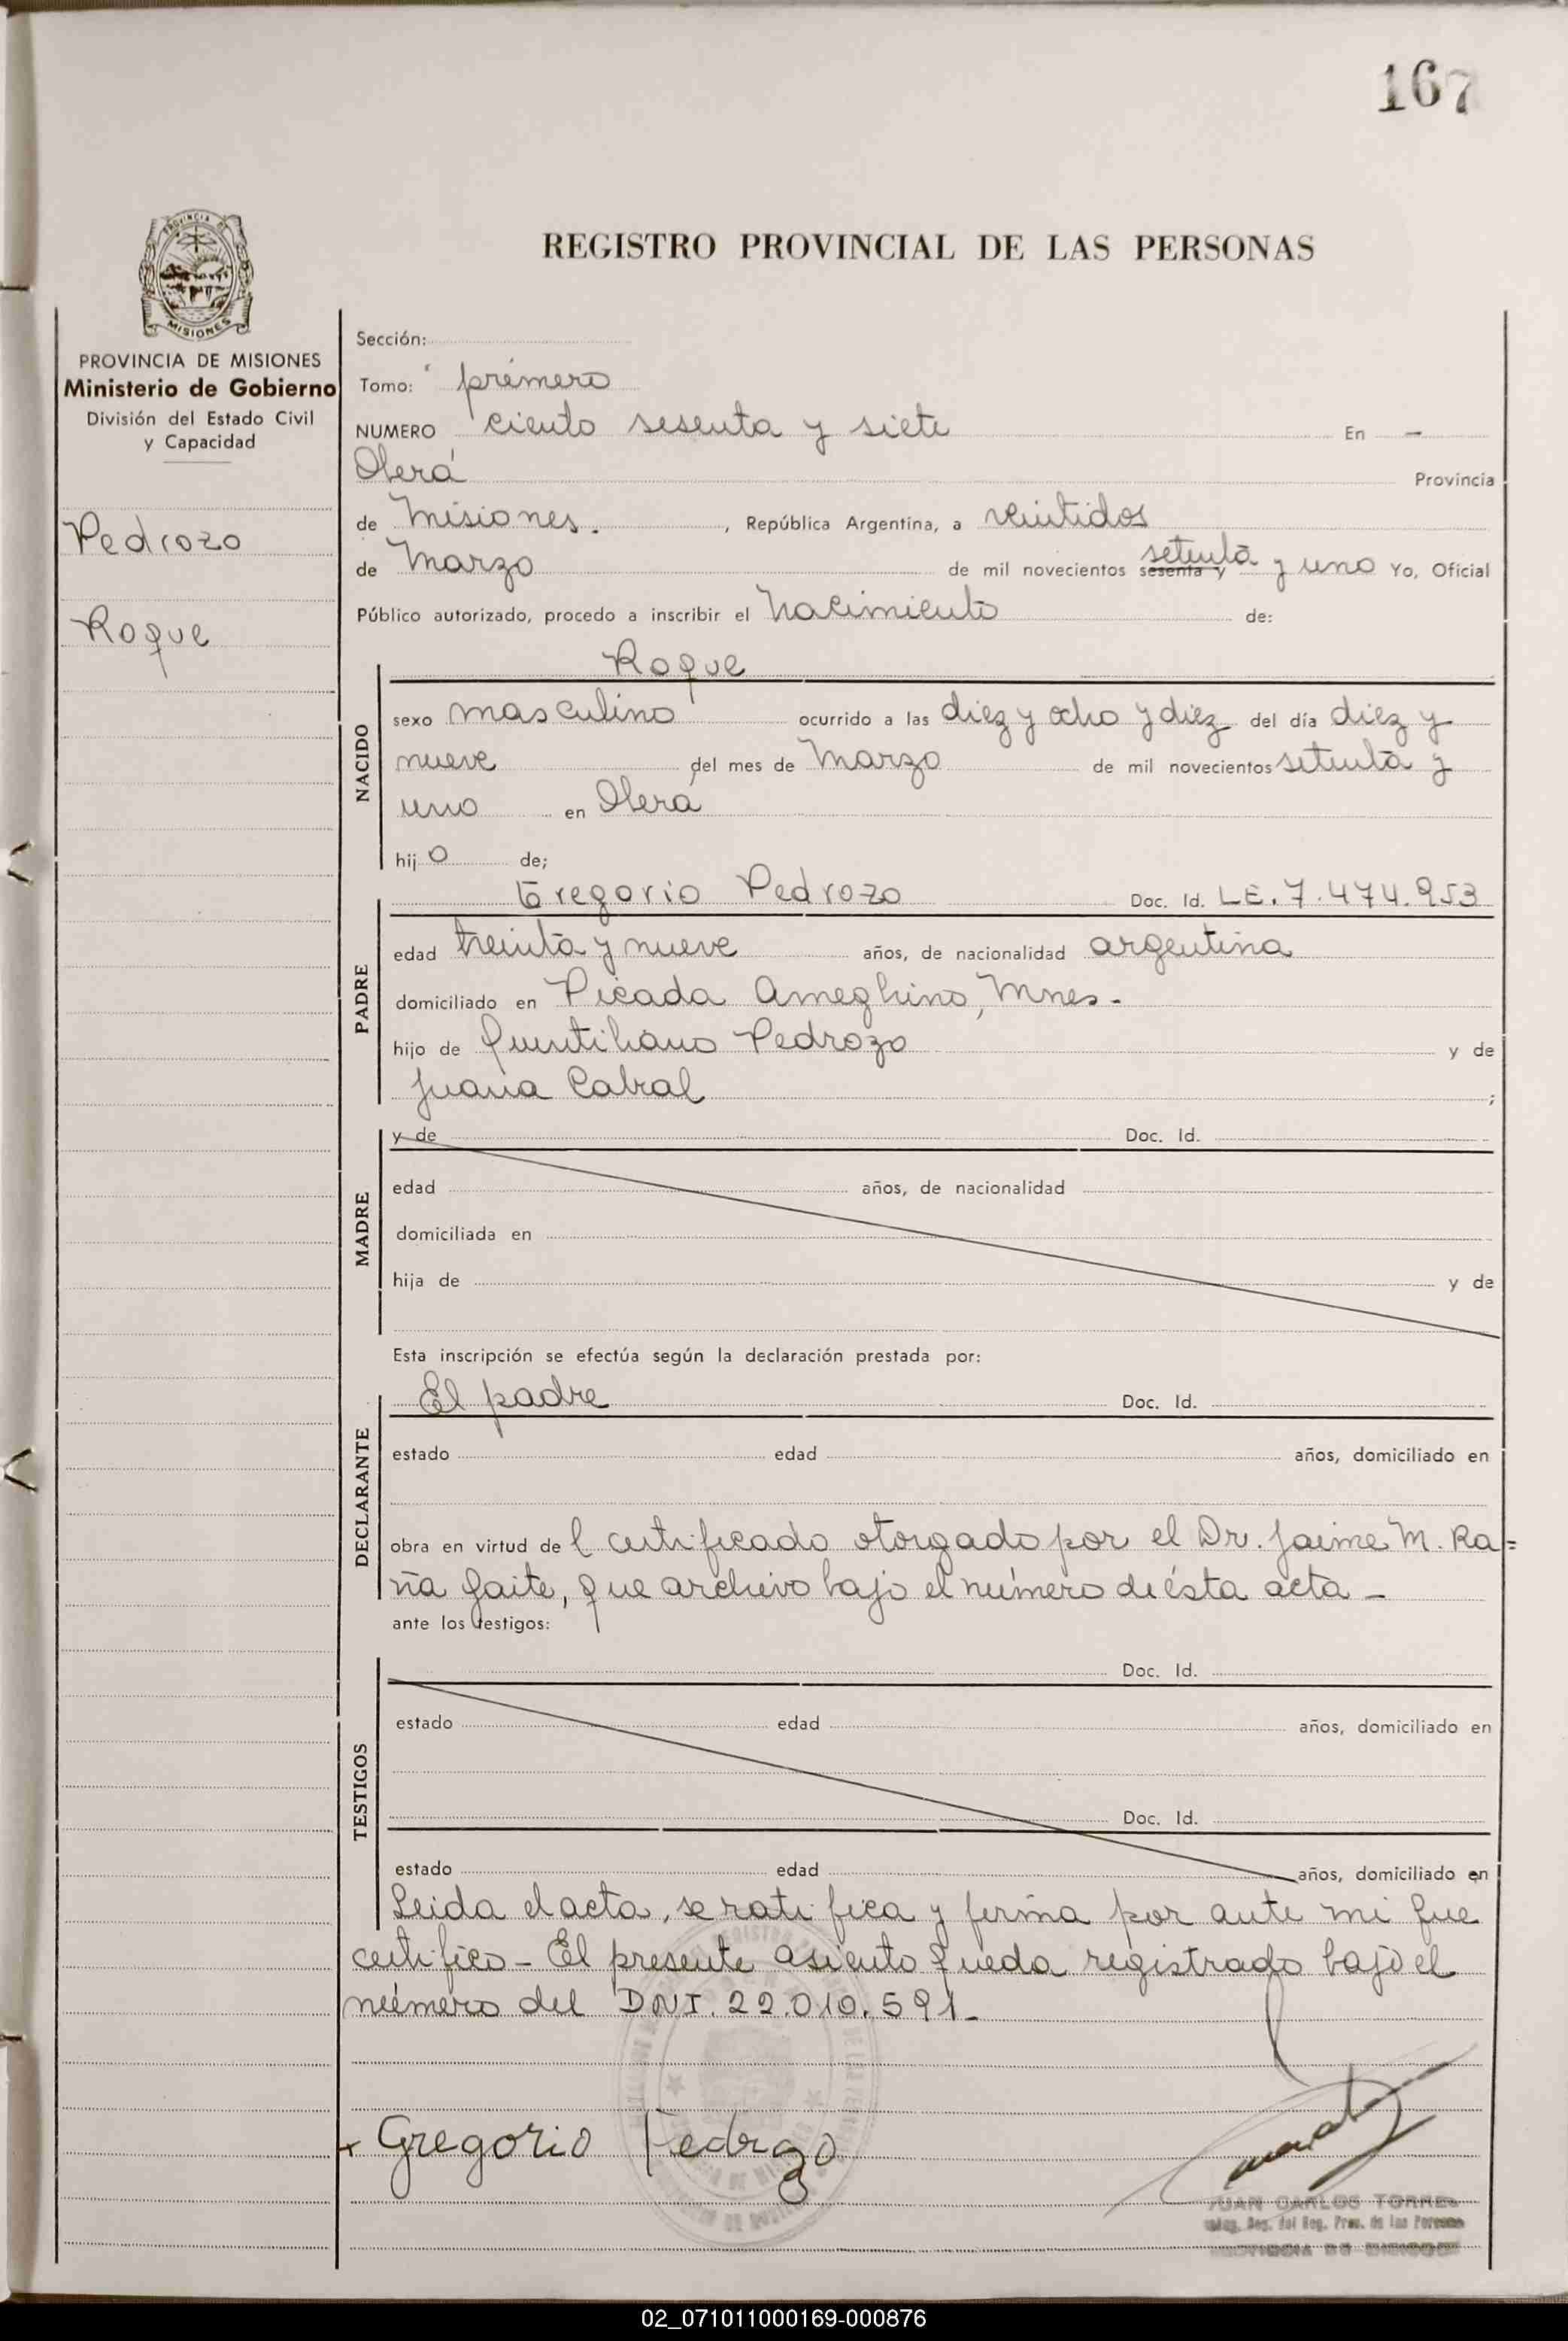 167
PROVINCIA DE MISIONES
REGISTRO PROVINCIAL DE LAS PERSONAS
PROVINCIA DE MISIONES
Ministerio de Gobierno
División del Estado Civil
y Capacidad
Pedrozo
Roque
Sección:
Tomo: primero
NUMERO ciento sesenta y siete En —
Oberá Provincia
de Misiones. , República Argentina, a veintidos
de Marzo de mil novecientos sesenta y setenta y uno Yo, Oficial
Público autorizado, procedo a inscribir el Nacimiento de:
Roque
NACIDO
sexo masculino ocurrido a las diez y ocho y diez del día diez y
nueve del mes de Marzo de mil novecientos setenta y
uno en Oberá
hijo de;
PADRE
Gregorio Pedrozo Doc. Id. LE. 7.474.953
edad treinta y nueve años, de nacionalidad argentina
domiciliado en Picada Ameghino, Mnes.
hijo de Quintiliano Pedrozo y de
Juana Cabral ;
MADRE
y de Doc. Id.
edad años, de nacionalidad
domiciliada en
hija de y de
Esta inscripción se efectúa según la declaración prestada por:
DECLARANTE
El padre Doc. Id.
estado edad años, domiciliado en
obra en virtud del certificado otorgado por el Dr. Jaime M. Ra=
ña Gaite, que archivo bajo el número de ésta acta —
ante los testigos:
TESTIGOS
Doc. Id.
estado edad años, domiciliado en
Doc. Id.
estado edad años, domiciliado en
Leida el acta, se ratifica y firma por ante mi que
certifico — El presente asiento queda registrado bajo el
número del DNI. 22.010.591 —
x Gregorio Pedrozo
JUAN CARLOS TORRES
Reg. del Reg. Prov. de las Personas
PROVINCIA DE MISIONES
02_071011000169-000876